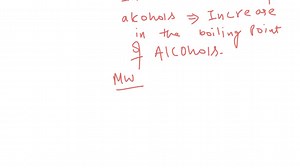 alcohols ⇒ Increase
in the boiling point
of Alcohols.
MW